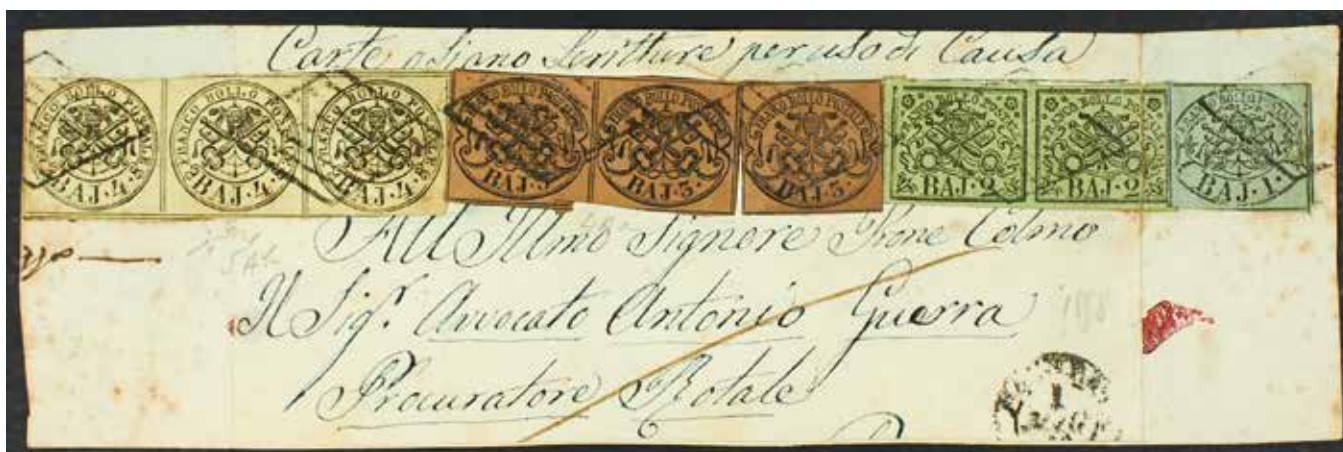 Carte osiano Scritture per uso di Causa
FRANCO BOLLO POSTALE BAJ. 4. FRANCO BOLLO POSTALE BAJ. 4. FRANCO BOLLO POSTALE BAJ. 4. FRANCO BOLLO POSTALE BAJ. 3. FRANCO BOLLO POSTALE BAJ. 3. FRANCO BOLLO POSTALE BAJ. 3. FRANCO BOLLO POSTALE BAJ. 2 FRANCO BOLLO POSTALE BAJ. 2 FRANCO BOLLO POSTALE BAJ. 1.
All Illmo Signore Prone Colmo
Il Sigr. Avvocato Antonio Guerra
1858
Procuratore Rotale
1